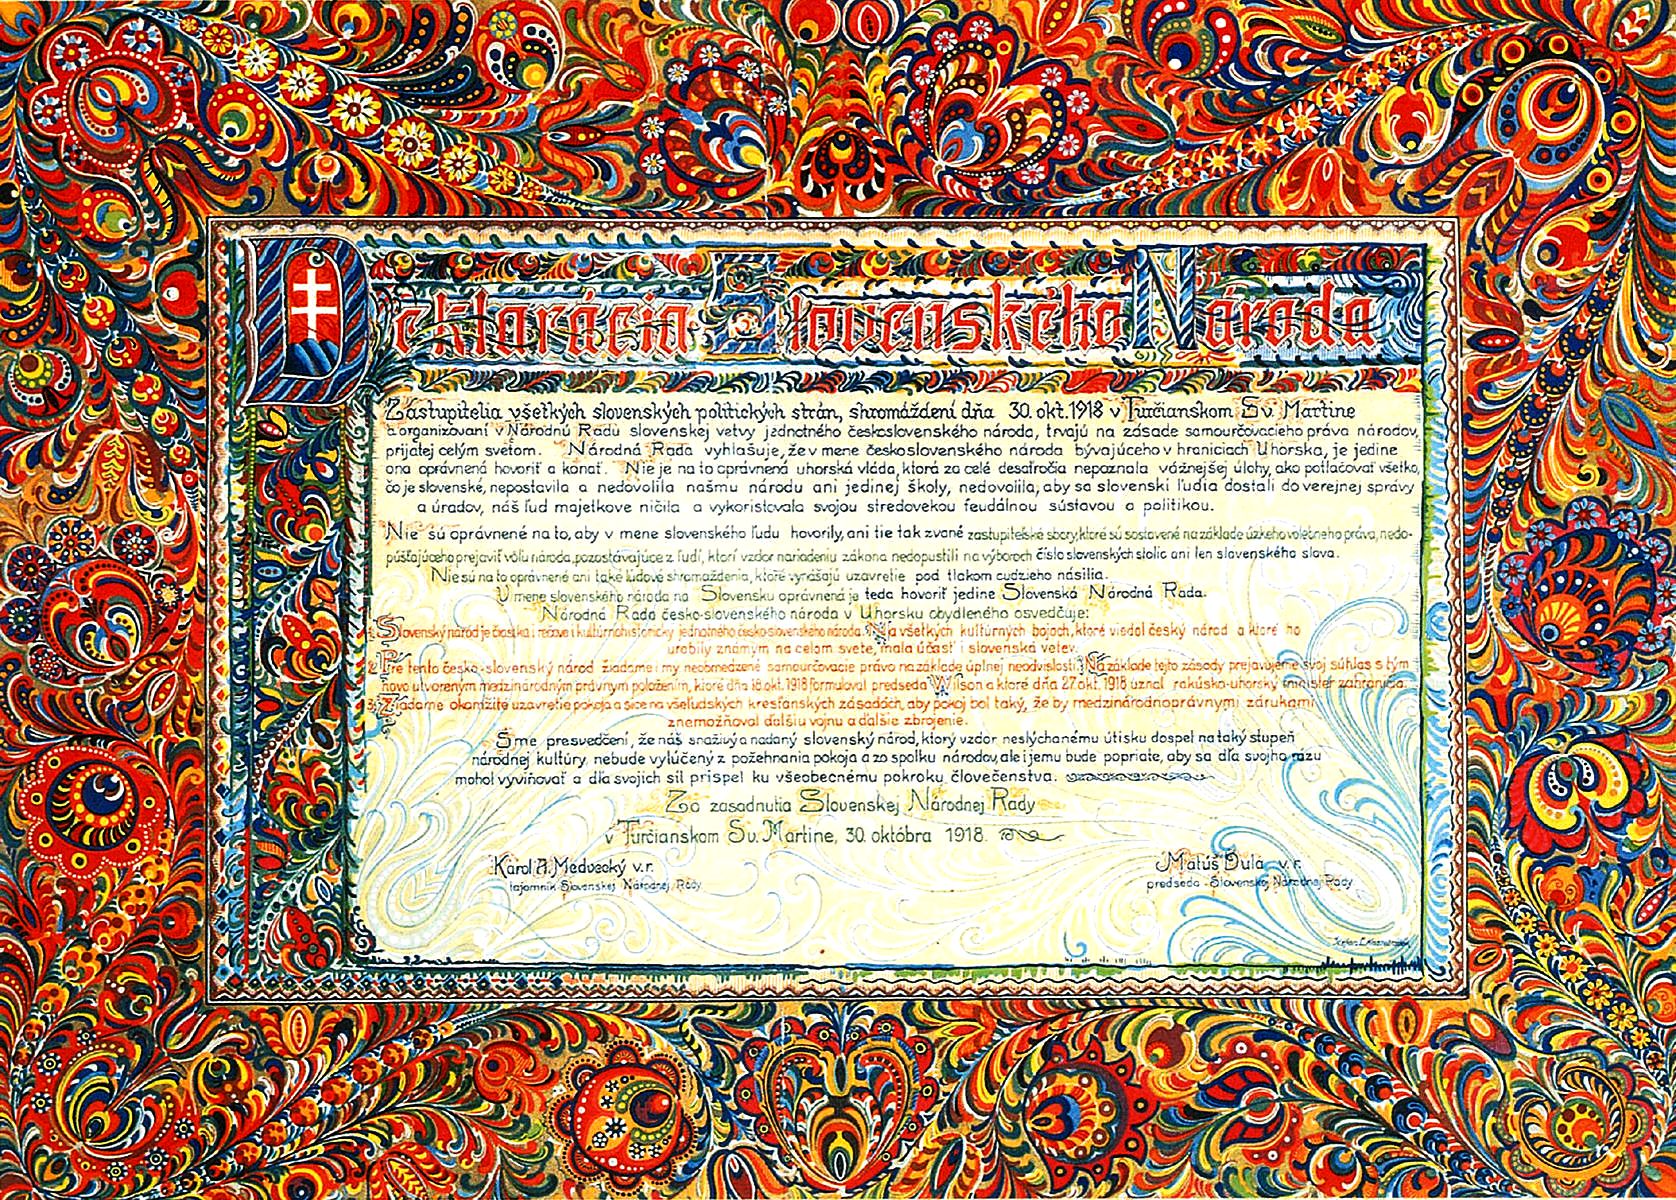 Deklarácia Slovenského Národa
Zástupitelia všetkých slovenských politických strán, shromáždení dňa 30. okt. 1918 v Turčianskom Sv. Martine
a organizovaní v Národnú Radu slovenskej vetvy jednotného československého národa, trvajú na zásade samourčovacieho práva národov,
prijatej celým svetom. Národná Rada vyhlašuje, že v mene československého národa bývajúceho v hraniciach Uhorska, je jedine
ona oprávnená hovoriť a konať. Nie je na to oprávnená uhorská vláda, ktorá za celé desaťročia nepoznala vážnejšej úlohy, ako potlačovať všetko,
čo je slovenské, nepostavila a nedovolila našmu národu ani jedinej školy, nedovolila, aby sa slovenskí ľudia dostali do verejnej správy
a úradov, náš ľud majetkove ničila a vykoristovala svojou stredovekou feudálnou sústavou a politikou.
Nie sú oprávnené na to, aby v mene slovenského ľudu hovorily, ani tie tak zvané zastupiteľské sbory, ktoré sú sostavené na základe úzkeho volebného práva, nedo-
púšťajúceho prejaviť vôľu národa, pozostávajúce z ľudí, ktorí vzdor nariadeniu zákona nedopustili na výboroch číslo slovenských stolíc ani len slovenského slova.
Nie sú na to oprávnené ani také ľudové shromaždenia, ktoré vynášajú uzavretie pod tlakom cudzieho násilia.
V mene slovenského národa na Slovensku oprávnená je teda hovoriť jedine Slovenská Národná Rada.
Národná Rada česko-slovenského národa v Uhorsku obydleného osvedčuje:
1. Slovenský národ je čiastka i rečove i kultúrno-historicky jednotného česko-slovenského národa. Na všetkých kultúrnych bojoch, ktoré viedol český národ a ktoré ho
urobily známym na celom svete, mala účasť i slovenská vetev.
2. Pre tento česko-slovenský národ žiadame i my neobmedzené samourčovacie právo na základe úplnej neodvislosti. Na základe tejto zásady prejavujeme svoj súhlas s tým
novo utvoreným medzinárodným právnym položením, ktoré dňa 18. okt. 1918 formuloval predseda Wilson a ktoré dňa 27. okt. 1918 uznal rakúsko-uhorský minister zahraničia.
3. Žiadame okamžité uzavretie pokoja a síce na všeľudských kresťanských zásadách, aby pokoj bol taký, že by medzinárodnoprávnymi zárukami
znemožňoval ďalšiu vojnu a ďalšie zbrojenie.
Sme presvedčení, že náš snaživý a nadaný slovenský národ, ktorý vzdor neslýchanému útisku dospel na taký stupeň
národnej kultúry, nebude vylúčený z požehnania pokoja a zo spolku národov, ale i jemu bude popriate, aby sa dľa svojho rázu
mohol vyvinovať a dľa svojich síl prispel ku všeobecnému pokroku človečenstva.
Zo zasadnutia Slovenskej Národnej Rady
v Turčianskom Sv. Martine, 30. októbra 1918.
Karol A. Medvecký v.r.
tajomník Slovenskej Národnej Rady
Matúš Dula, v. r.
predseda Slovenskej Národnej Rady